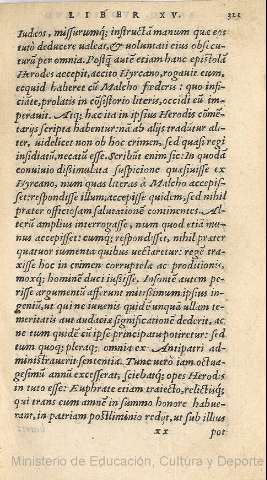 LIBER XV. 321
Iudæos, missurumq; instructã manum quæ eos
tutò deducere ualeat, & voluntati eius obsecu-
turũ per omnia. Postq; autẽ etiam hanc epistolã
Herodes accepit, accito Hyrcano, rogauit eum,
ecquid haberet cũ Malcho fœderis: quo infi-
ciate, prolatis in cõsistorio literis, occidi eũ im-
perauit. Atq; hæc ita in ipsius Herodis cõmẽ-
tarijs scripta habentur: nã ab alijs tradũtur ali-
ter, uidelicet non ob hoc crimen, sed quasi regi
insidiatũ, necatũ esse. Scribũt enim sic: In quodã
conuiuio dissimulata suspicione quæsiuisse ex
Hyrcano, num quas literas à Malcho accepis-
set: respondisse illum, accepisse quidem, sed nihil
præter officiosam salutationẽ continentes. Al-
terũ amplius interrogasse, num quod etiã mu-
nus accepisset: cumq; respondisset, nihil præter
quatuor iumenta quibus uectaretur: regẽ tra-
xisse hoc in crimen corruptelæ ac proditionis,
moxq; hominẽ duci iussisse. Insontẽ autem pe-
risse argumentũ afferunt mitissimum ipsius in-
geniũ, ut qui ne iuuenis quidẽ unquã ullam te-
meritatis aut audaciæ significationẽ dederit, ac
ne tum quidẽ cũ ipse principatu potiretur: sed
tum quoq; pleraq; omnia ex Antipatri ad-
ministrauerit sententia. Tunc uerò iam octua-
gesimũ annũ excesserat, sciebatq; opes Herodis
in tuto esse: Euphrate etiam traiecto, relictisq;
qui trans cum amnẽ in summo honore habue-
rant, in patriam postliminio redijt, ut sub illius
xx pot
Ministerio de Educación, Cultura y Deporte